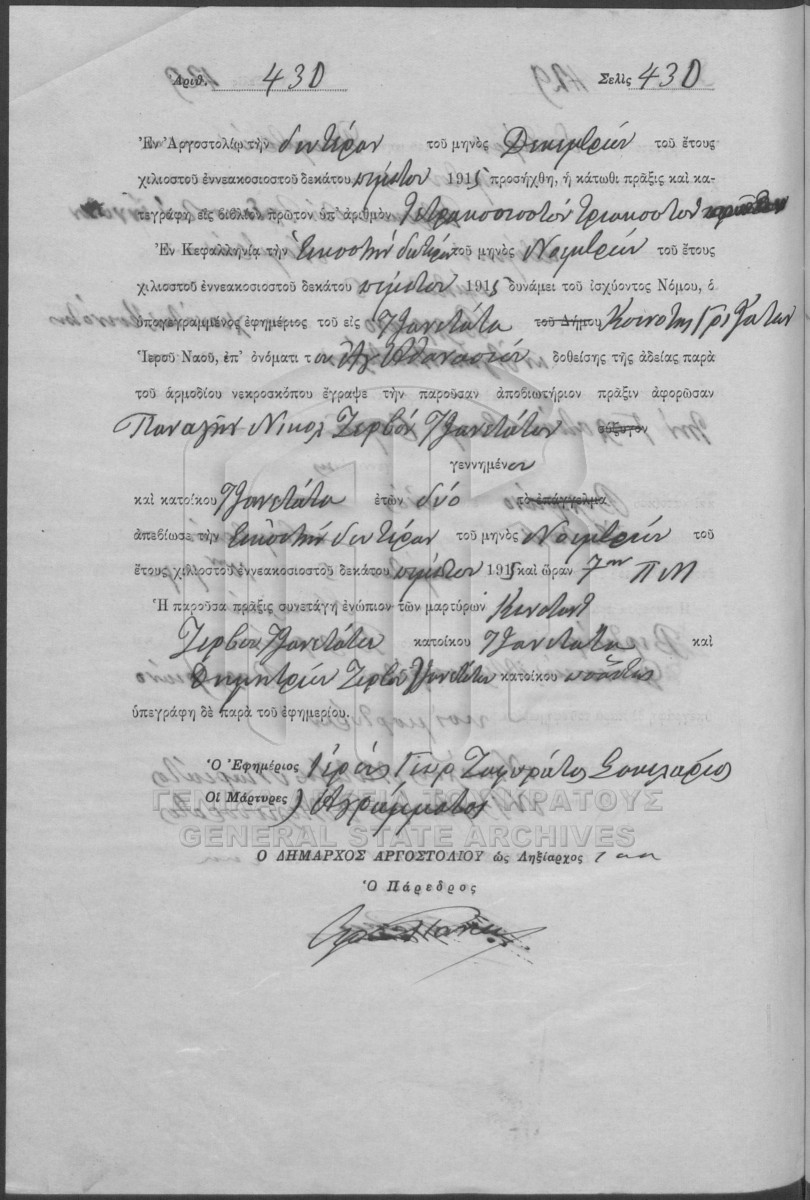 Ἀριθ. 430 Σελὶς 430
Ἐν Ἀργοστολίῳ τὴν δευτέραν τοῦ μηνὸς Δεκεμβρίου τοῦ ἔτους
χιλιοστοῦ ἐννεακοσιοστοῦ δεκάτου πέμπτου 1915 προσήχθη, ἡ κάτωθι πρᾶξις καὶ κα-
τεγράφη εἰς βιβλίον πρῶτον ὑπ' ἀριθμὸν Τετρακοσιοστὸν τριακοστὸν
Ἐν Κεφαλληνίᾳ τὴν Εἰκοστὴν δευτέραν τοῦ μηνὸς Νοεμβρίου τοῦ ἔτους
χιλιοστοῦ ἐννεακοσιοστοῦ δεκάτου πέμπτου 1915 δυνάμει τοῦ ἰσχύοντος Νόμου, ὁ
ὑπογεγραμμένος ἐφημέριος τοῦ εἰς Τζανετάτα τοῦ Δήμου Κοινότης Γριζάτων
Ἱεροῦ Ναοῦ, ἐπ' ὀνόματι τοῦ Ἁγ Ἀθανασίου δοθείσης τῆς ἀδείας παρὰ
τοῦ ἁρμοδίου νεκροσκόπου ἔγραψε τὴν παροῦσαν ἀποβιωτήριον πρᾶξιν ἀφορῶσαν
Παναγῆν Νικολ Ζερβόν Τζανετάτον σύζυγον
γεννημένον
καὶ κατοίκου Τζανετάτα ἐτῶν δύο τὸ ἐπάγγελμα
ἀπεβίωσε τὴν Εἰκοστὴν δευτέραν τοῦ μηνὸς Νοεμβρίου τοῦ
ἔτους χιλιοστοῦ ἐννεακοσιοστοῦ δεκάτου πέμπτου 1915 καὶ ὥραν 7ην ΠΜ
Ἡ παροῦσα πρᾶξις συνετάγη ἐνώπιον τῶν μαρτύρων Κωνσταντ
Ζερβου Τζανετάτου κατοίκου Τζανετάτα καὶ
Δημητρίου Ζερβοῦ Τζανετάτου κατοίκου ὡσαύτως
ὑπεγράφη δὲ παρὰ τοῦ ἐφημερίου.
Ὁ Ἐφημέριος Ἱερεὺς Γεωρ Ζαφυράτος
Οἱ Μάρτυρες) Ἀγράμματος
ΓΕΝΙΚΑ ΑΡΧΕΙΑ ΤΟΥ ΚΡΑΤΟΥΣ
GENERAL STATE ARCHIVES
Ο ΔΗΜΑΡΧΟΣ ΑΡΓΟΣΤΟΛΙΟΥ ὡς Ληξίαρχος
Ὁ Πάρεδρος